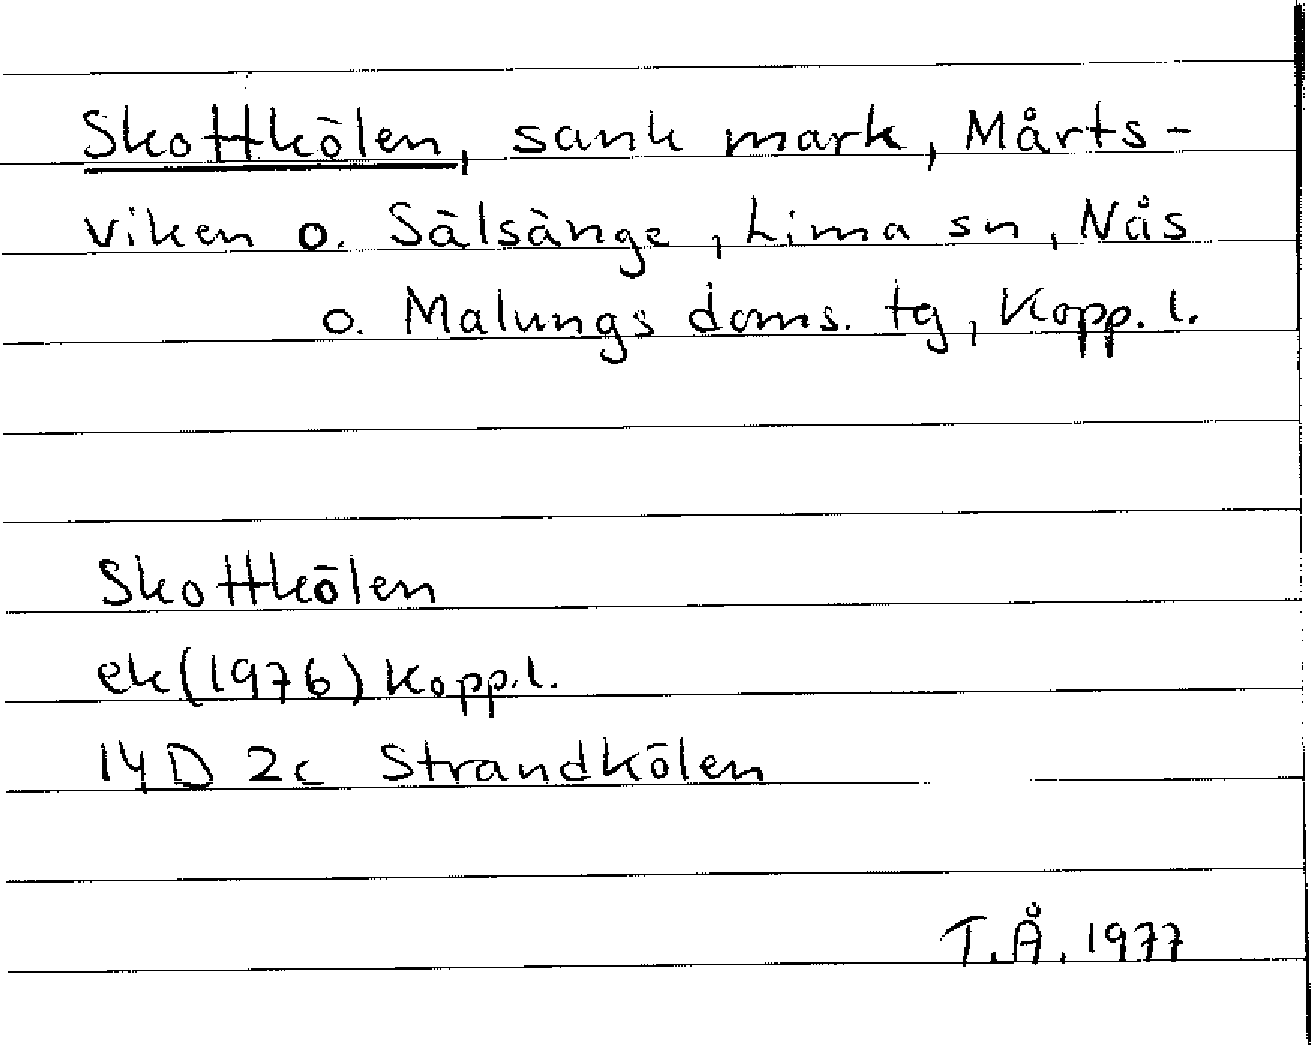 Skottkölen, sank mark, Mårts-
viken o. Sälsänge, Lima sn, Nås
o. Malungs doms. tg, Kopp. l.
Skottkölen
ek (1976) Kopp.l.
14D 2c Strandkölen
T.Å. 1977